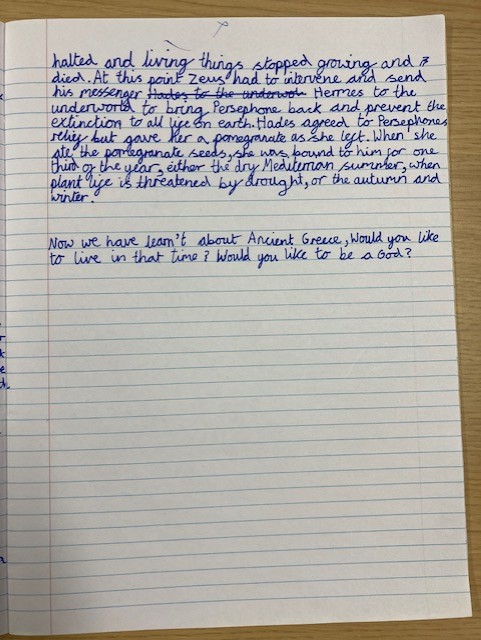 halted and living things stopped growing and
died. At this point Zeus had to intervene and send
his messenger Hades to the underwol Hermes to the
underworld to bring Persephone back and prevent the
extinction to all life on earth. Hades agreed to Persephones
relief but gave her a pomegranate as she left. When she
ate the pomegranate seeds, she was bound to him for one
third of the year, either the dry Mediteranian summer, when
plant life is threatened by drought, or the autumn and
winter.
Now we have learn't about Ancient Greece, Would you like
to live in that time? Would you like to be a God?